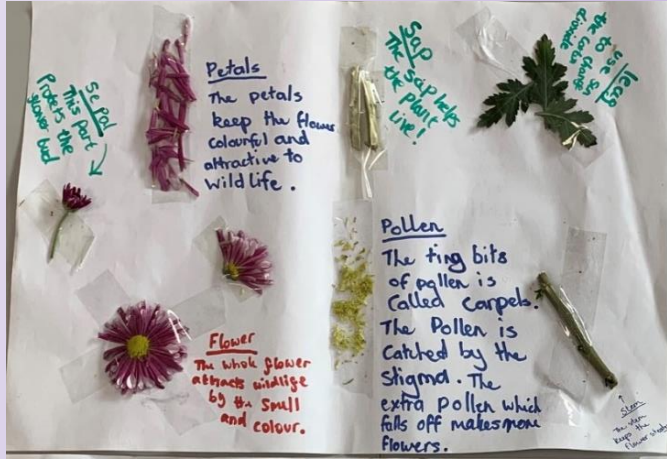 Sepal
This part
Protects the
flower bud
Petals
The petals
keep the flower
colourful and
attractive to
wildlife.
Sap
The sap helps
the plant
live!
leaf
use Sun
to change
the carbon
dioxide
Flower
The whole flower
attracts wildlife
by the smell
and colour.
Pollen
The tiny bits
of pollen is
called carpels.
The Pollen is
catched by the
Stigma. The
extra pollen which
falls off makes more
flowers.
Stem
The stem
keeps the
flower